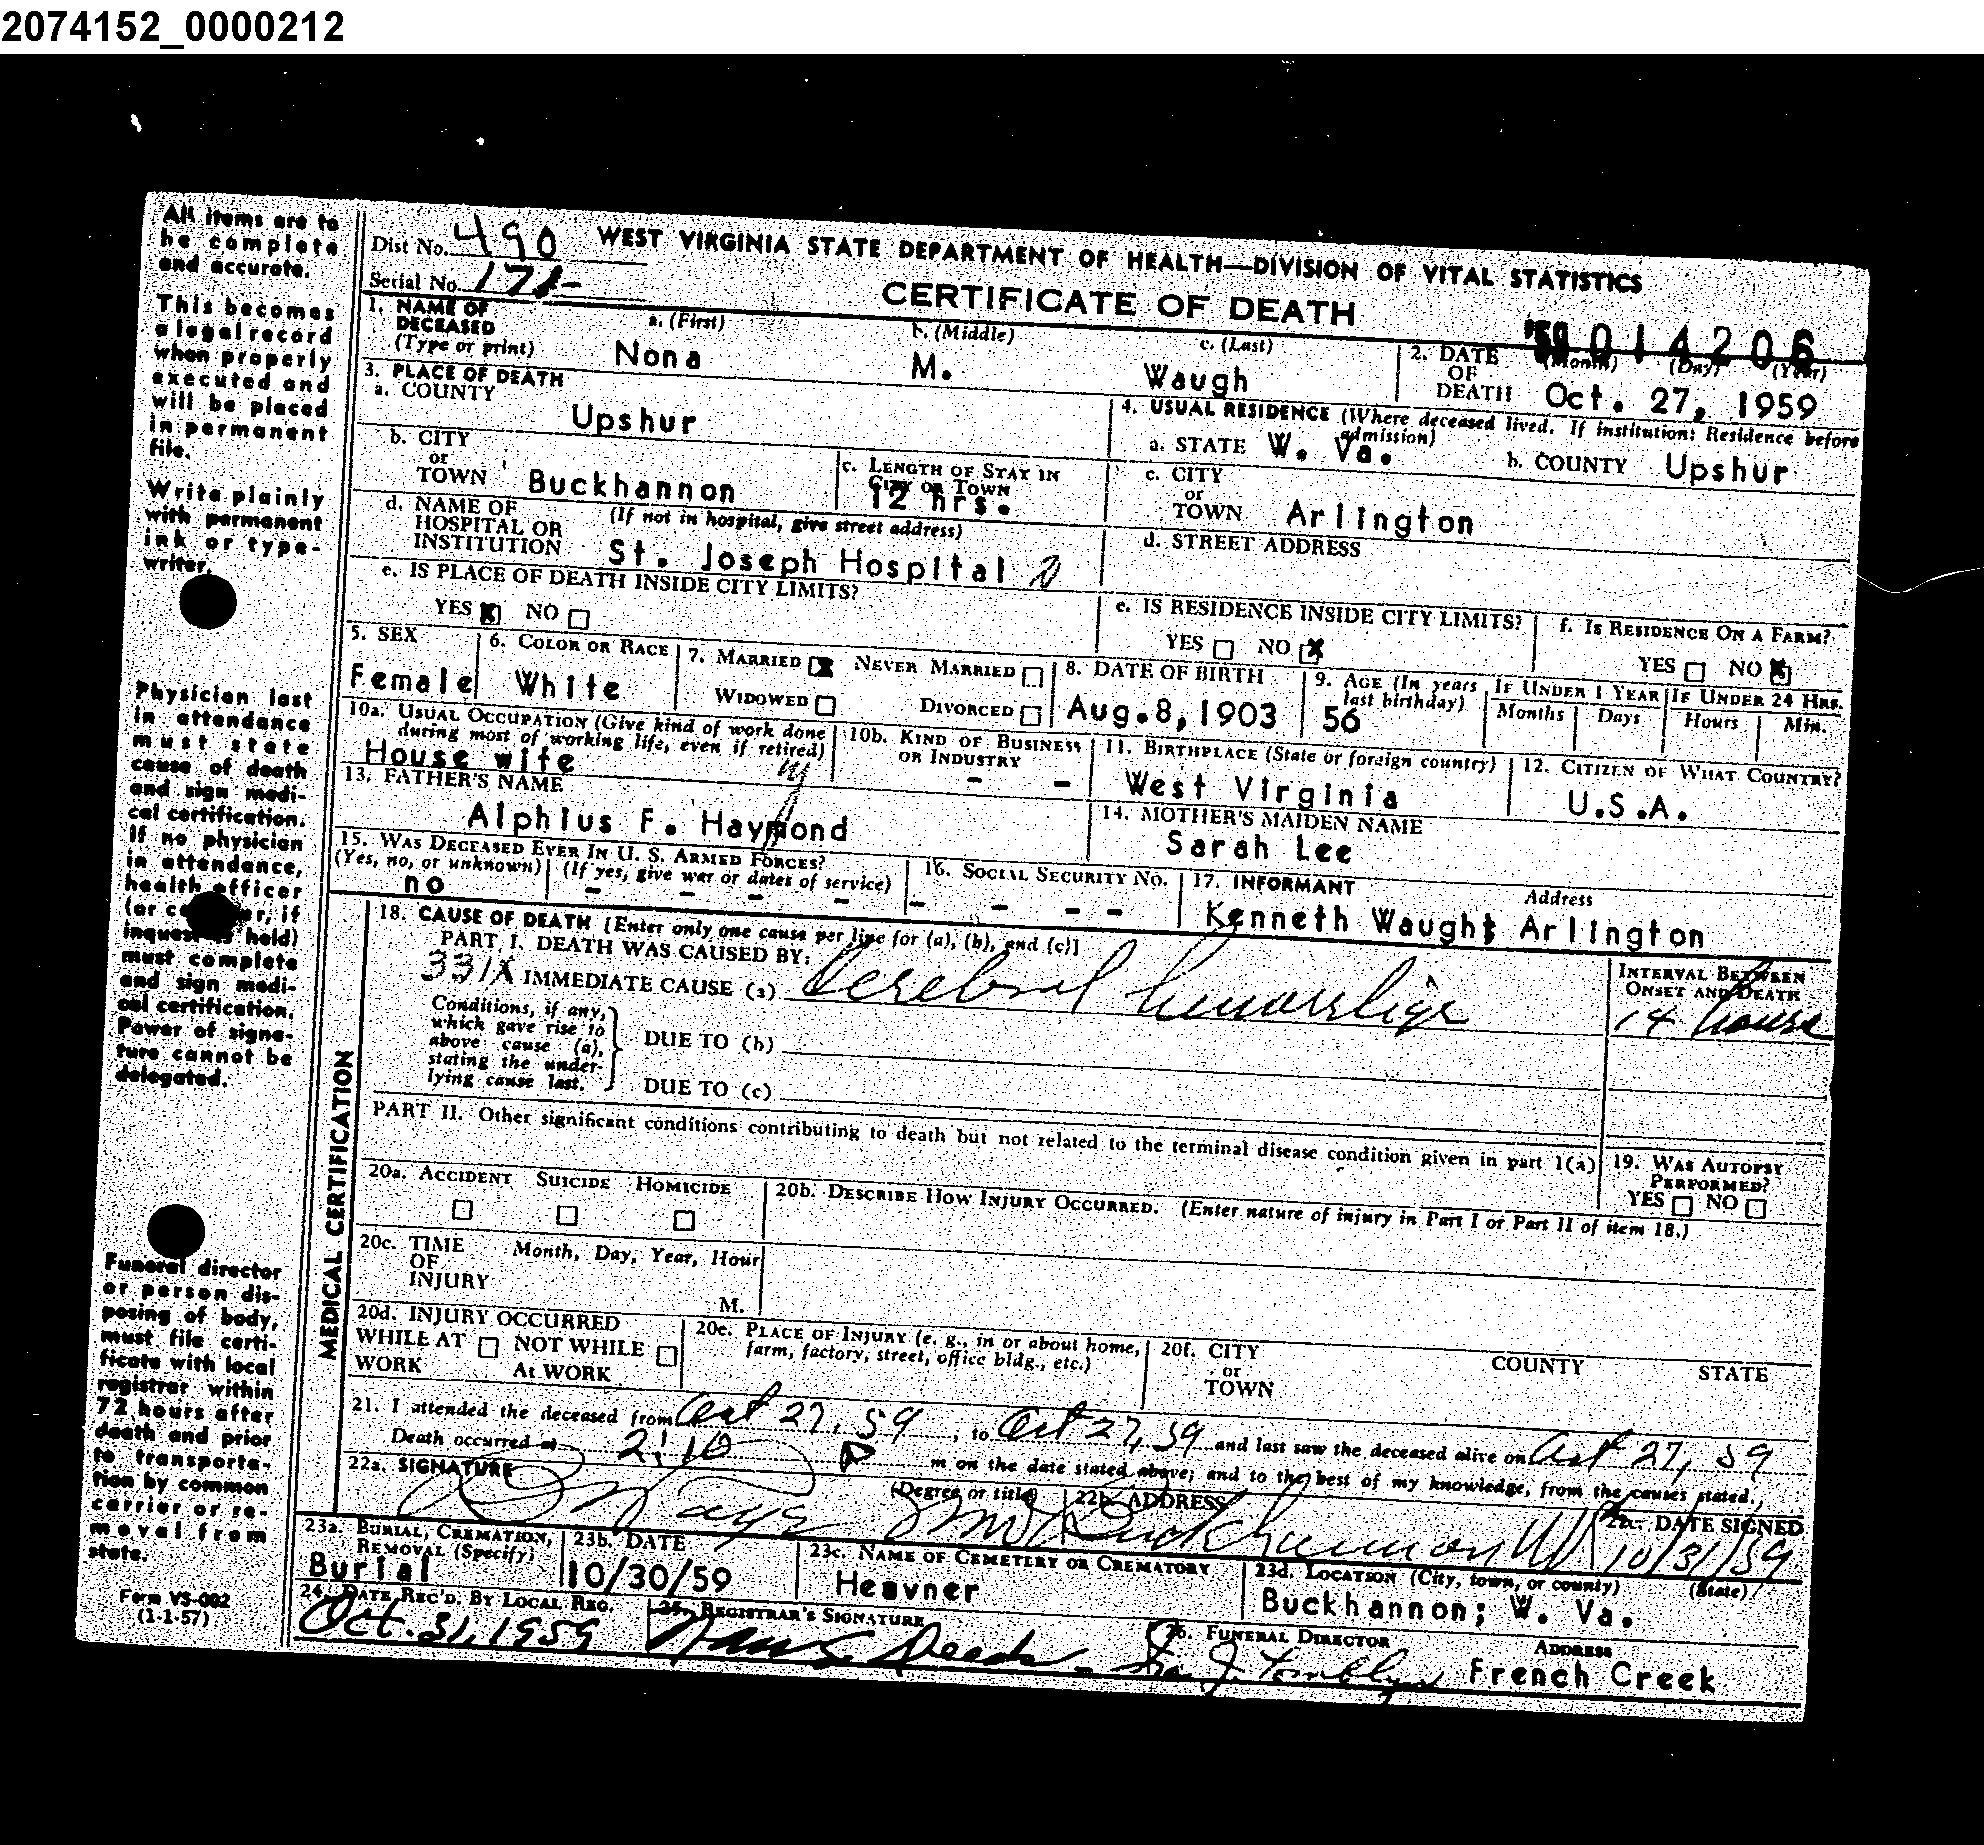 2074152_0000212
All items are to
be complete
and accurate.
This becomes
a legal record
when properly
executed and
will be placed
in permanent
file.
Write plainly
with permanent
ink or type-
writer.
Physician last
in attendance
must state
cause of death
and sign medi-
cal certification.
If no physician
in attendance,
health officer
(or r, if
inquest is held)
must complete
and sign medi-
cal certification.
Power of signa-
ture cannot be
delegated.
Funeral director
or person dis-
posing of body,
must file certi-
ficate with local
registrar within
72 hours after
death and prior
to transporta-
tion by common
carrier or re-
moval from
state.
Form VS-002
(1-1-57)
Dist No. 490 WEST VIRGINIA STATE DEPARTMENT OF HEALTH—DIVISION OF VITAL STATISTICS
Serial No. 171- CERTIFICATE OF DEATH
014206
1. NAME OF DECEASED (Type or print) a. (First) Nona b. (Middle) M. c. (Last) Waugh
2. DATE OF DEATH (Month) (Day) (Year) Oct. 27, 1959
3. PLACE OF DEATH
a. COUNTY Upshur
4. USUAL RESIDENCE (Where deceased lived. If institution: Residence before admission)
a. STATE W. Va. b. COUNTY Upshur
b. CITY or TOWN Buckhannon c. LENGTH OF STAY IN CITY OR TOWN 12 hrs.
c. CITY or TOWN Arlington
d. NAME OF HOSPITAL OR INSTITUTION (If not in hospital, give street address) St. Joseph Hospital
d. STREET ADDRESS
e. IS PLACE OF DEATH INSIDE CITY LIMITS?
YES X NO
e. IS RESIDENCE INSIDE CITY LIMITS?
YES NO X
f. IS RESIDENCE ON A FARM?
YES NO X
5. SEX Female
6. COLOR OR RACE White
7. MARRIED X NEVER MARRIED
WIDOWED DIVORCED
8. DATE OF BIRTH Aug.8,1903
9. AGE (In years last birthday) 56
IF UNDER 1 YEAR Months Days
IF UNDER 24 HRS. Hours Min.
10a. USUAL OCCUPATION (Give kind of work done during most of working life, even if retired) House wife
10b. KIND OF BUSINESS OR INDUSTRY - -
11. BIRTHPLACE (State or foreign country) West Virginia
12. CITIZEN OF WHAT COUNTRY? U.S.A.
13. FATHER'S NAME Alphius F. Haymond
14. MOTHER'S MAIDEN NAME Sarah Lee
15. WAS DECEASED EVER IN U. S. ARMED FORCES?
(Yes, no, or unknown) no (If yes, give war or dates of service) - - - -
16. SOCIAL SECURITY NO. - - - -
17. INFORMANT Address
Kenneth Waugh; Arlington
MEDICAL CERTIFICATION
18. CAUSE OF DEATH [Enter only one cause per line for (a), (b), and (c)]
PART I. DEATH WAS CAUSED BY:
331X IMMEDIATE CAUSE (a) Cerebral hemorrhage
INTERVAL BETWEEN ONSET AND DEATH
14 hours
Conditions, if any, which gave rise to above cause (a), stating the under-lying cause last.
DUE TO (b)
DUE TO (c)
PART II. Other significant conditions contributing to death but not related to the terminal disease condition given in part 1(a)
19. WAS AUTOPSY PERFORMED?
YES NO
20a. ACCIDENT SUICIDE HOMICIDE
20b. DESCRIBE HOW INJURY OCCURRED. (Enter nature of injury in Part I or Part II of item 18.)
20c. TIME OF INJURY Month, Day, Year, Hour
M.
20d. INJURY OCCURRED
WHILE AT WORK NOT WHILE At WORK
20e. PLACE OF INJURY (e. g., in or about home, farm, factory, street, office bldg., etc.)
20f. CITY or TOWN COUNTY STATE
21. I attended the deceased from Oct 27, 59, to Oct 27, 59 and last saw the deceased alive on Oct 27, 59
Death occurred at 2:10 P m on the date stated above; and to the best of my knowledge, from the causes stated.
22a. SIGNATURE (Degree or title) MD
22b. ADDRESS Buckhannon W
22c. DATE SIGNED 10/31/59
23a. BURIAL, CREMATION, REMOVAL (Specify) Burial
23b. DATE 10/30/59
23c. NAME OF CEMETERY OR CREMATORY Heavner
23d. LOCATION (City, town, or county) (State) Buckhannon; W. Va.
24. DATE REC'D. BY LOCAL REG. Oct. 31, 1959
25. REGISTRAR'S SIGNATURE
26. FUNERAL DIRECTOR ADDRESS
French Creek